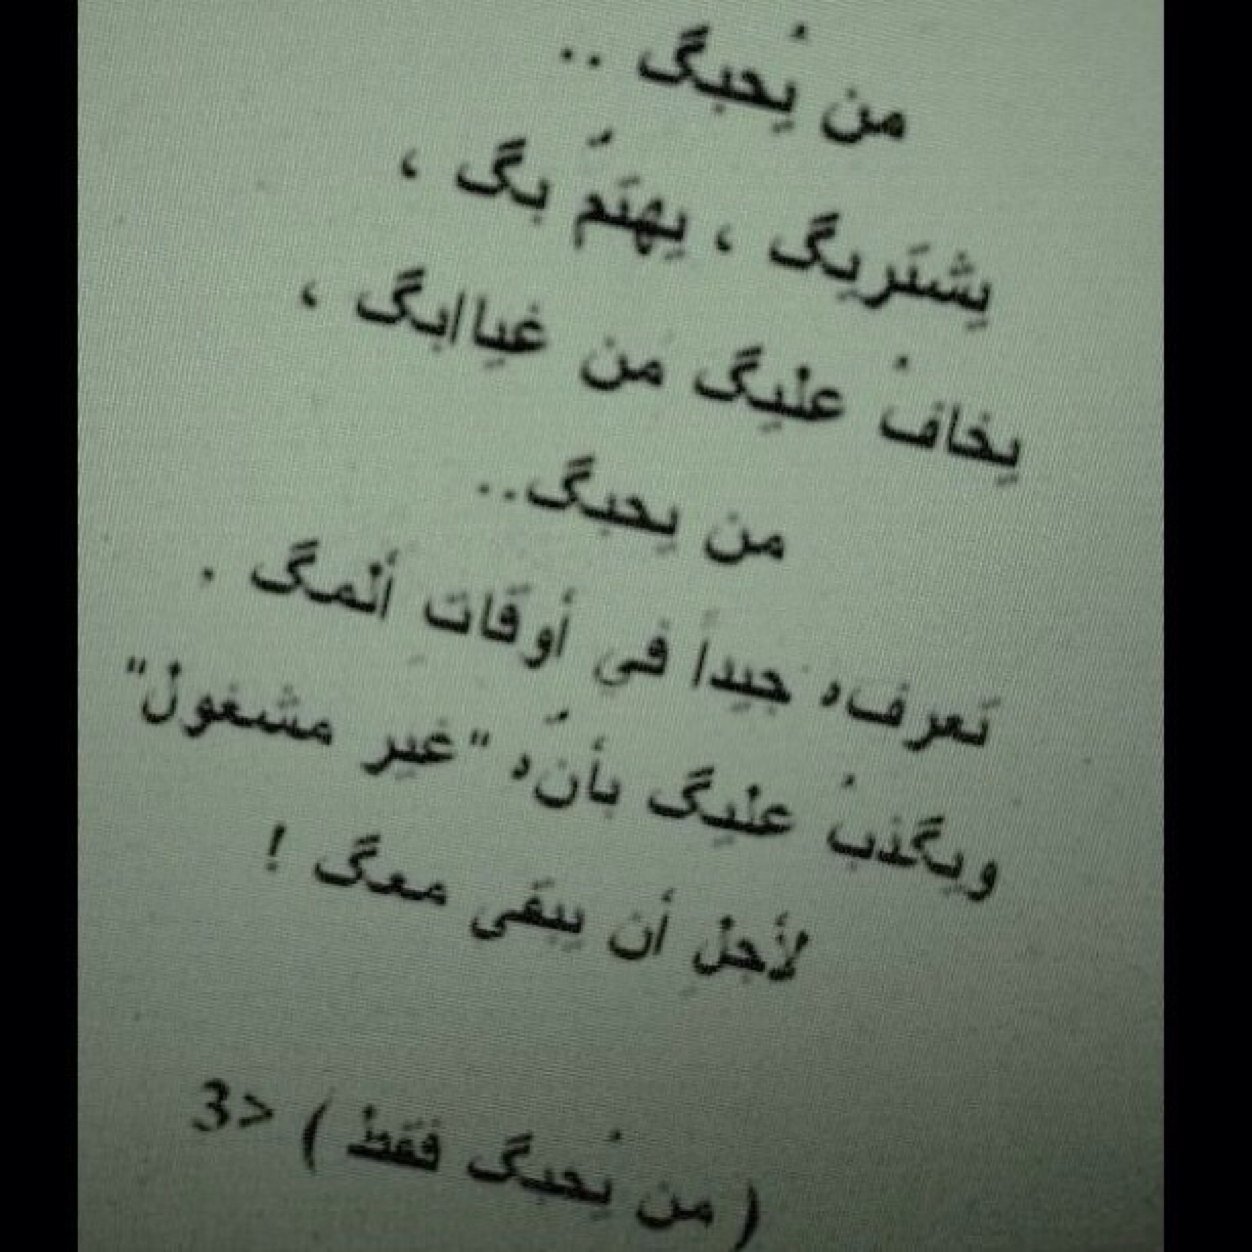 من يُحبگ ..
يشتريگ ، يهتمّ بگ ،
يخافُ عليگ من غياابگ ،
من يحبگ..
تعرفه جيداً في أوقات ألمگ .
ويگذبُ عليگ بأنّه "غير مشغول"
لأجلِ أن يبقى معگ !
( من يُحبگ فقط ) <3